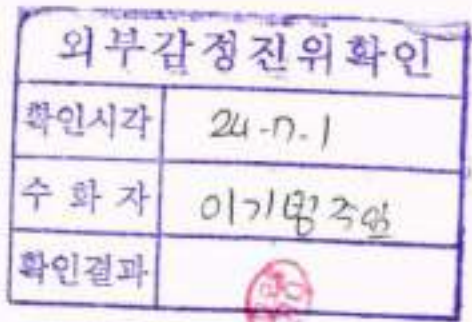 외부감정진위확인
확인시각 24-7.1
수화자 이기 주임
확인결과